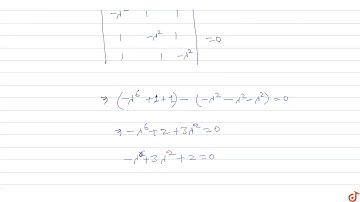 | -λ² 1 1 |
| 1 -λ² 1 | = 0
| 1 1 -λ² |
⇒ (-λ⁶ + 1 + 1) - (-λ² - λ² - λ²) = 0
⇒ -λ⁶ + 2 + 3λ² = 0
-λ⁶ + 3λ² + 2 = 0